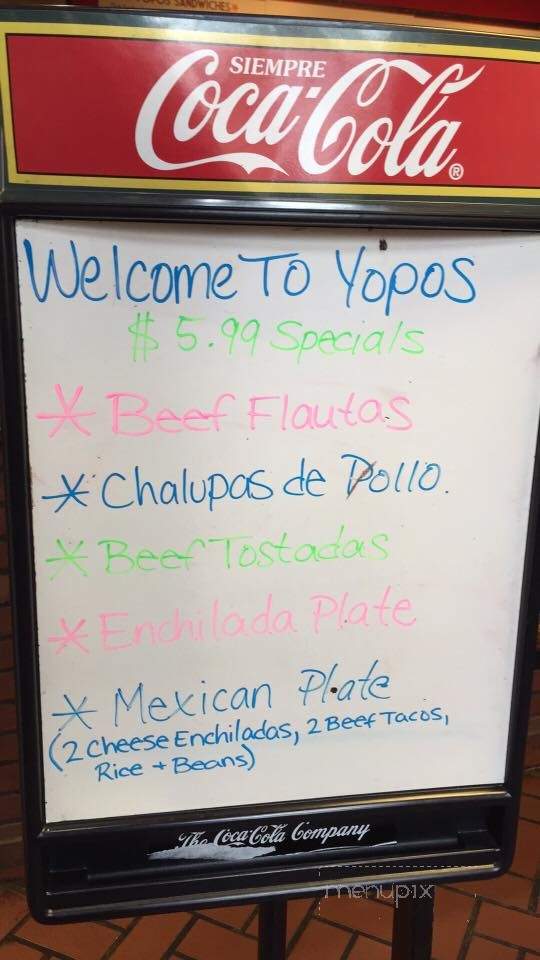 POPOS SANDWICHES
SIEMPRE
Coca-Cola®
Welcome To Yopos
$ 5.99 Specials
* Beef Flautas
* Chalupas de Pollo.
* Beef Tostadas
* Enchilada Plate
* Mexican Plate
(2 Cheese Enchiladas, 2 Beef Tacos,
Rice + Beans)
The Coca-Cola Company
menupix